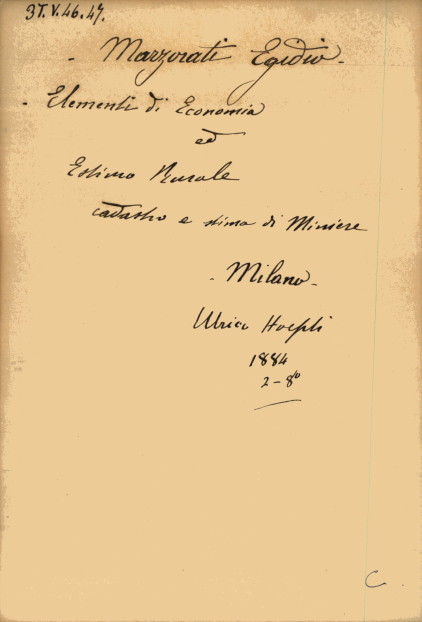 3T.V.46.47.
- Marzorati Egidio -
- Elementi di Economia
ed
Estimo Rurale
cadastro e stima di Miniere
- Milano -
Ulrico Hoepli
1884
2-8º
C.